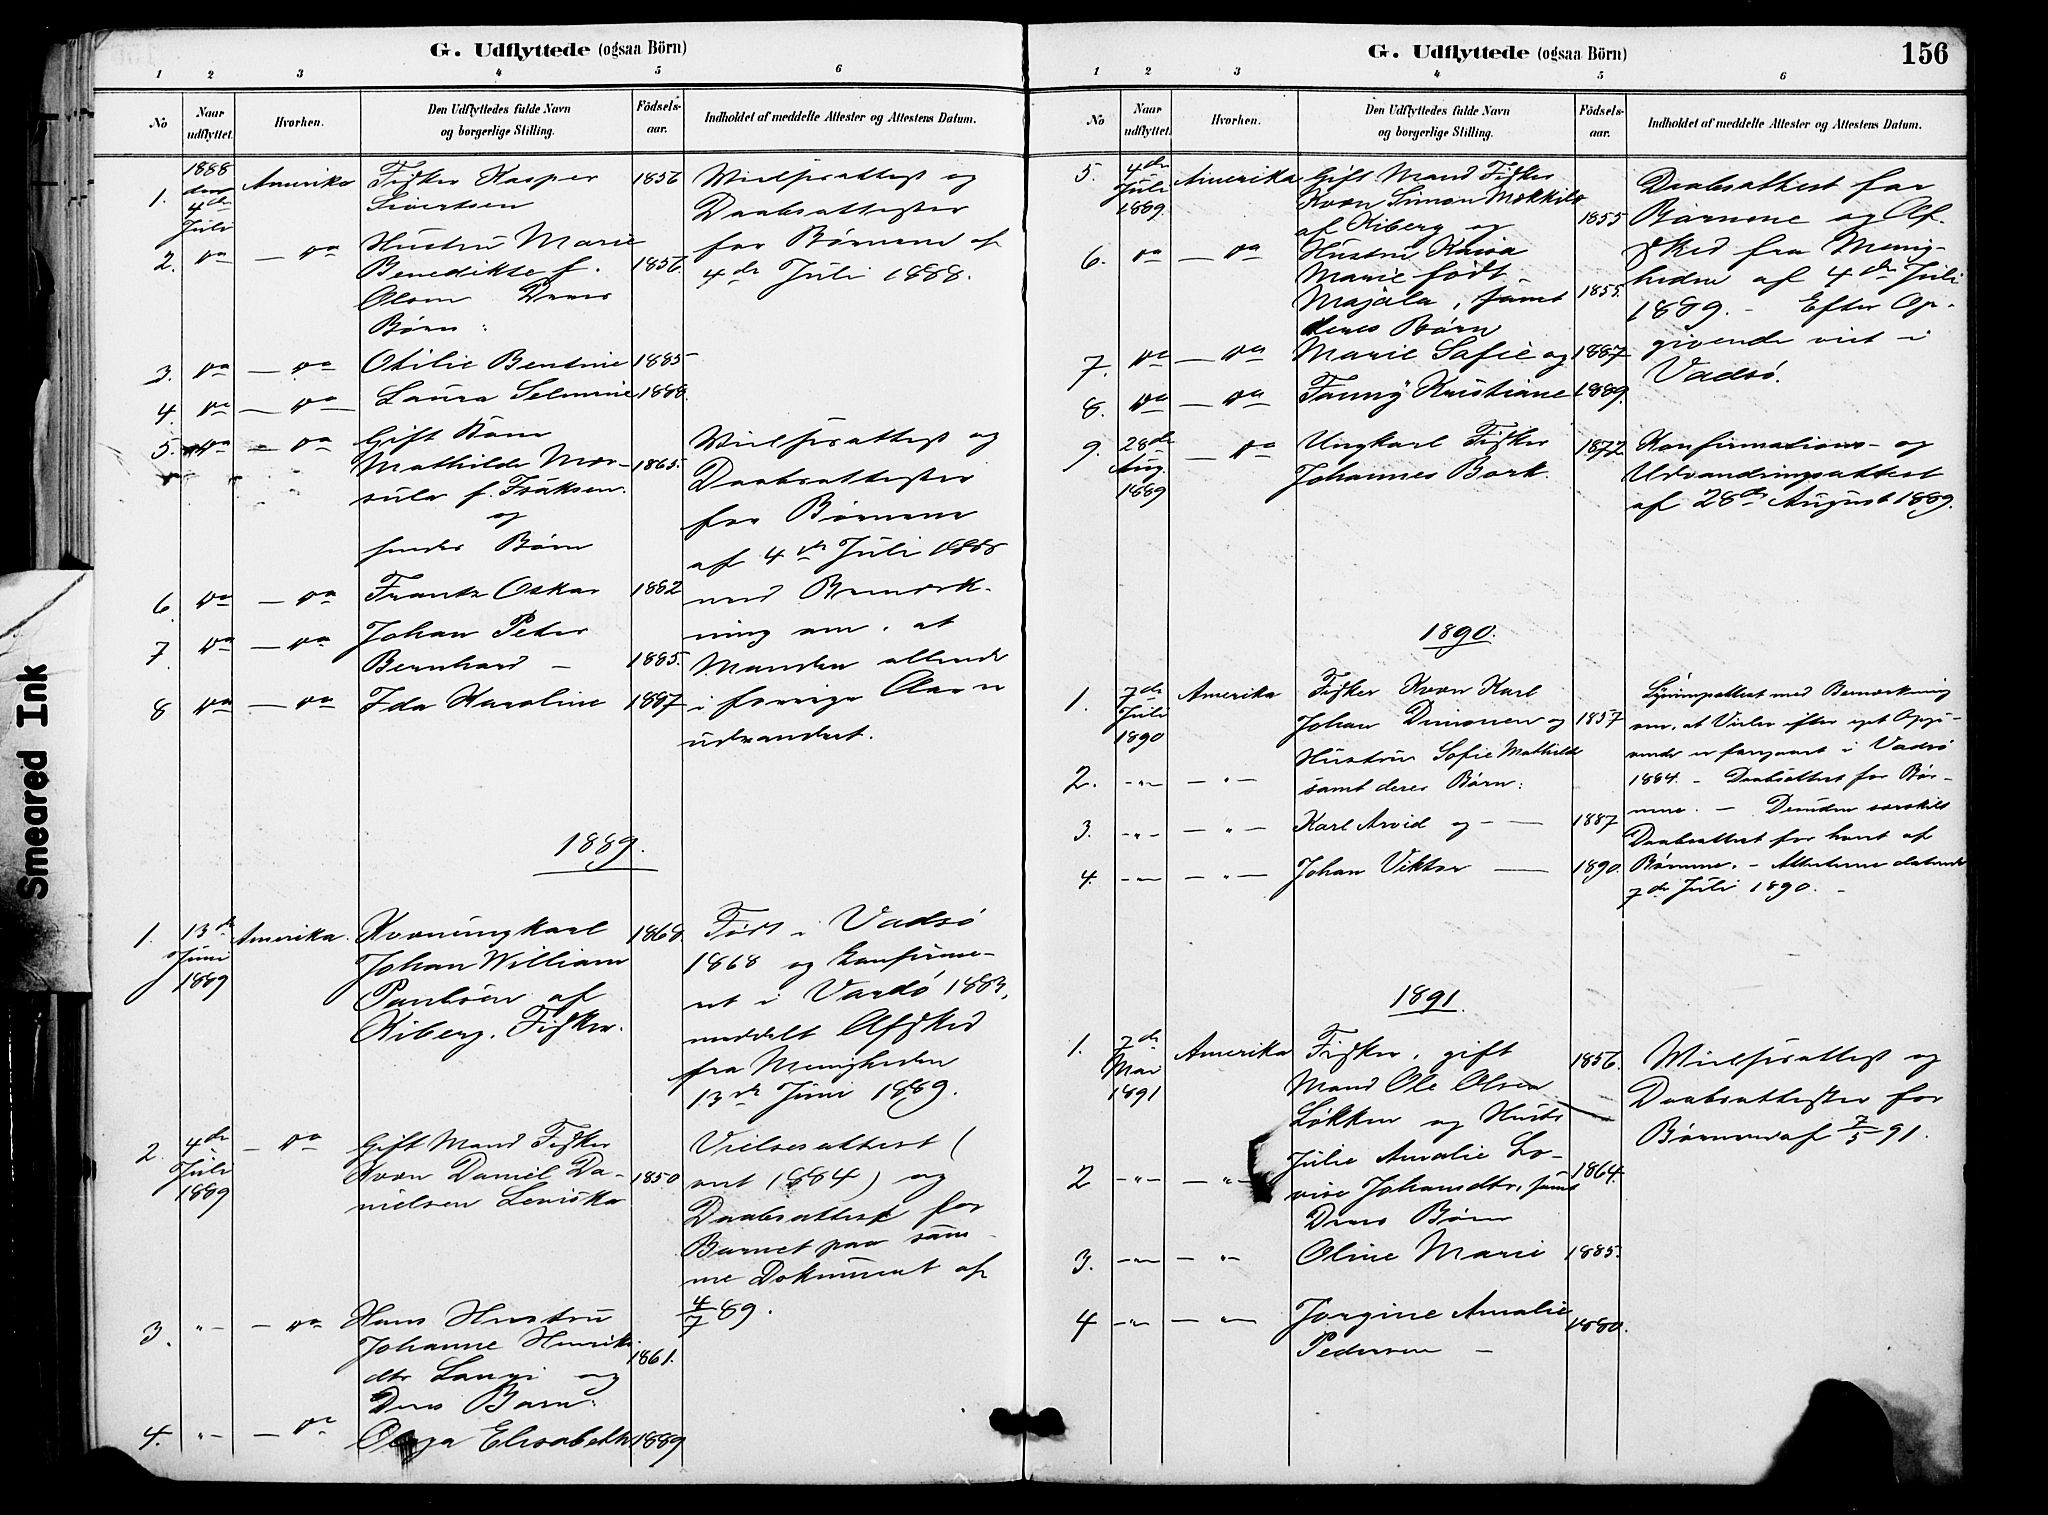 G. Udflyttede (ogsaa Börn)
1 2 3 4 5 6
No Naar udflyttet. Hvorhen. Den Udflyttedes fulde Navn og borgerlige Stilling. Födsels-aar. Indholdet af meddelte Attester og Attestens Datum.
1888
1. 4de Juli Amerika Fisker Kasper 1856 Vielsesattest og
Sivertsen Daabsattester
2. Do — Do Hustru Marie for Børnene af
Benedikte f. 1856. 4de Juli 1888.
Olsen Deres
Børn:
3. Do — Do Otilie Bentine 1885
4. Do — Do Laura Selmine 1888.
5. Do — Do Gift Kone Vielsesattest og
Mathilde Mar- 1865. Daabsattester
sula f. Isaksen. for Børnene
og af 4de Juli 1888
hendes Børn
6. Do — Do Frantz Oskar 1882 med Bemærk-
7. Do — Do Johan Peter ning om, at
Bernhard — 1885. Manden allerede
8 Do — Do Ida Karoline 1887 i forrige Aar er
udvandret.
1889.
1. 13de Juni 1889 Amerika. Kvænungkarl 1868. Født i Vadsø
Johan William 1868 og konfirme-
Paulsen af ret i Vardø 1883,
Kiberg. Fisker. meddelt Afsked
fra Menigheden
13de Juni 1889.
2. 4de Juli 1889 — Do Gift Mand Fisker Vielsesattest (
Kvæn Daniel Da- 1850 viet 1884) og
nielsen Leviska Daabsattest for
Barnet paa sam-
me Dokument af
3. " — Do Hans Hustru 4/7 89.
Johanne Henriks-
dtr Langi og 1861.
Deres Barn:
4. " — Do Olga Elisabeth 1889
G. Udflyttede (ogsaa Börn) 156
1 2 3 4 5 6
No Naar udflyttet. Hvorhen. Den Udflyttedes fulde Navn og borgerlige Stilling. Födsels-aar. Indholdet af meddelte Attester og Attestens Datum.
5. 4de Juli 1889. Amerika Gift Mand Fisker Daabsattest for
Kvæn Simon Mekkila 1855 Børnene og Af-
af Kiberg og sked fra Menig-
6. Do — Do Hustru Kaisa heden af 4de Juli
Marie født
Majala, samt 1855. 1889. — Efter Op-
deres Børn givende viet i
7. Do — Do Marie Safie og 1887 Vadsø.
8. Do — Do Fanny Kristiane 1889.
9. 28de Aug. 1889 — Do Ungkarl Fisker 1872 Konfirmations- og
Johannes Bork. Udvandringsattest
af 28de August 1889.
1890.
1. 7de Juli 1890 Amerika Fisker Kvæn Karl med Bemærkning
Johan Dimonen og 1857 om, at Vielse efter eget Opgi-
Hustru Sofie Mathilde vende er foregaaet i Vadsø
2. — " — — " — samt deres Børn: 1884. — Daabsattest for Bør-
nene. — Desuden særskilt
3. — " — — " — Karl Arvid og — 1887 Daabsattest for hvert af
4. — " — — " — Johan Viktor — 1890. Børnene. — Attesterne daterede
7de Juli 1890. —
1891.
1. 7de Mai 1891 Amerika Fisker, gift 1856. Vielsesattest og
Mand Ole Olsen Daabsattester for
Løkken og Hustr Børnene af 7/5 91.
2 — " — — " — Julie Amalie Lo- 1864.
vise Johansdtr, samt
Deres Børn
3. — " — — " — Oline Marie 1885.
4 — " — — " — Jorgine Amalie 1880.
Pedersen —
Smeared Ink